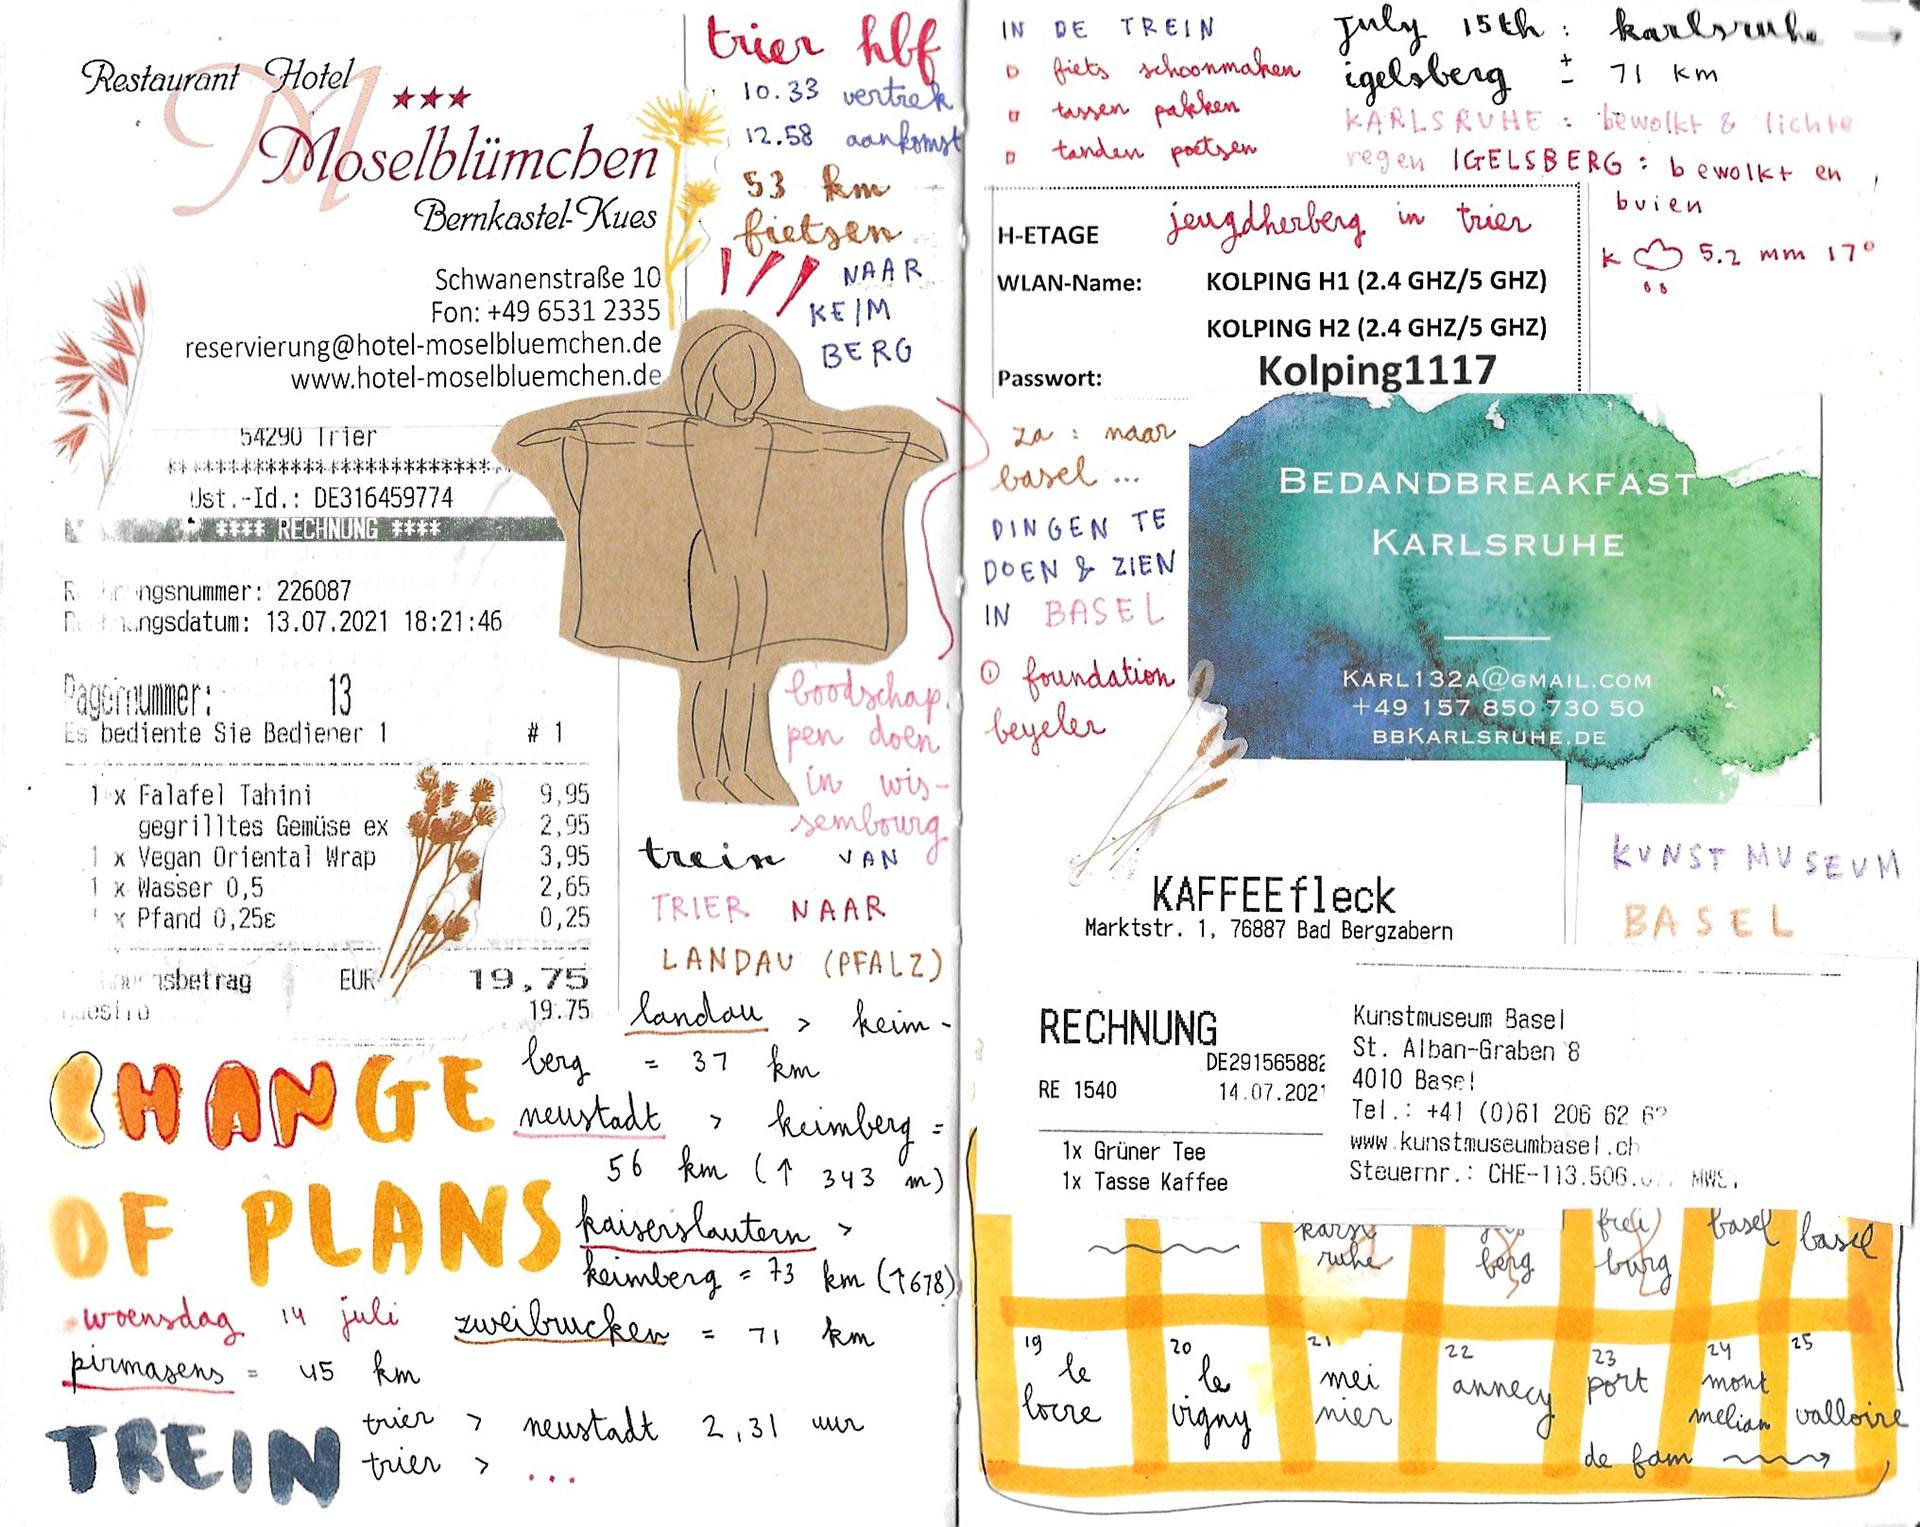 Restaurant Hotel
***
Moselblümchen
Bernkastel-Kues
Schwanenstraße 10
Fon: +49 6531 2335
reservierung@hotel-moselbluemchen.de
www.hotel-moselbluemchen.de
54290 Trier
**************************
Ust.-Id.: DE316459774
**** RECHNUNG ****
ngsnummer: 226087
ngsdatum: 13.07.2021 18:21:46
Pagernummer: 13
Es bediente Sie Bediener 1 # 1
1 x Falafel Tahini 9,95
gegrilltes Gemüse ex 2,95
1 x Vegan Oriental Wrap 3,95
1 x Wasser 0,5 2,65
x Pfand 0,25ε 0,25
sbetrag EUR 19,75
19.75
CHANGE
OF PLANS
woensdag 14 juli
pirmasens = 45 km
TREIN
trier hbf
10.33 vertrek
12.58 aankomst
53 km
fietsen
!!! NAAR
KEIM
BERG
boodschap
pen doen
in wis-
sembourg
trein VAN
TRIER NAAR
LANDAU (PFALZ)
landau > keim-
berg = 37 km
neustadt > keimberg =
56 km (↑ 343 m)
kaiserslautern >
keimberg = 73 km (↑678)
zweibrucken = 71 km
trier > neustadt 2,31 uur
trier > ...
IN DE TREIN
fiets schoonmaken
tassen pakken
tanden poetsen
july 15th : karlsruhe →
igelsberg ± 71 km
KARLSRUHE : bewolkt & lichte
regen IGELSBERG : bewolkt en
buien
K 5.2 mm 17°
jeugdherberg in trier
H-ETAGE
WLAN-Name: KOLPING H1 (2.4 GHZ/5 GHZ)
KOLPING H2 (2.4 GHZ/5 GHZ)
Passwort: Kolping1117
za : naar
basel ...
DINGEN TE
DOEN & ZIEN
IN BASEL
① foundation
beyeler
BEDANDBREAKFAST
KARLSRUHE
KARL132A@GMAIL.COM
+49 157 850 730 50
BBKARLSRUHE.DE
KUNSTMUSEUM
BASEL
KAFFEEfleck
Marktstr. 1, 76887 Bad Bergzabern
RECHNUNG
DE291565882
RE 1540 14.07.2021
1x Grüner Tee
1x Tasse Kaffee
Kunstmuseum Basel
St. Alban-Graben 8
4010 Basel
Tel.: +41 (0)61 206 62 62
www.kunstmuseumbasel.ch
Steuernr.: CHE-113.506. MWST
karls
ruhe
berg
frei
burg
basel
basel
19 le
locre
20 le
vigny
21 mei
nier
22 annecy
23 port
24 mont
melian
25 valloire
de fam →